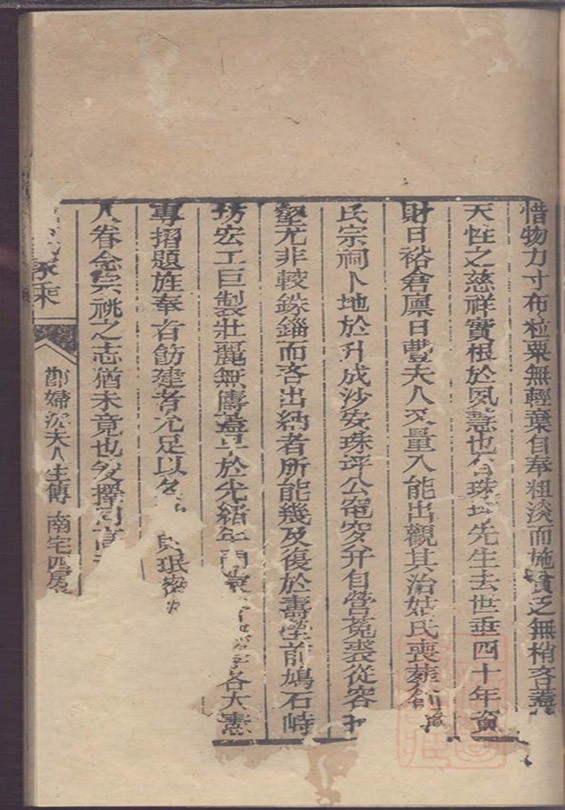 惜物力寸布粒粟無輕棄自奉粗淡而施貧乏無稍吝蓋
天性之慈祥實根於夙慧也自珠坡先生去世垂四十年資
財日裕倉廩日豐夫人又量入能出觀其治姑氏喪葬創
氏宗祠卜地於升成沙安珠坪公窀穸并自營菟裘從容
堅尤非較錙銖而吝出納者所能幾及復於壽塋前鳩石峙
坊宏工巨製壯麗無儔蓋早於光緒年間各大憲
專摺題旌奉旨飭建者允足以貞珉
人眷念宗祧之志猶未竟也爰擇
家乘
鄧婦沈夫人生傳 南宅四房